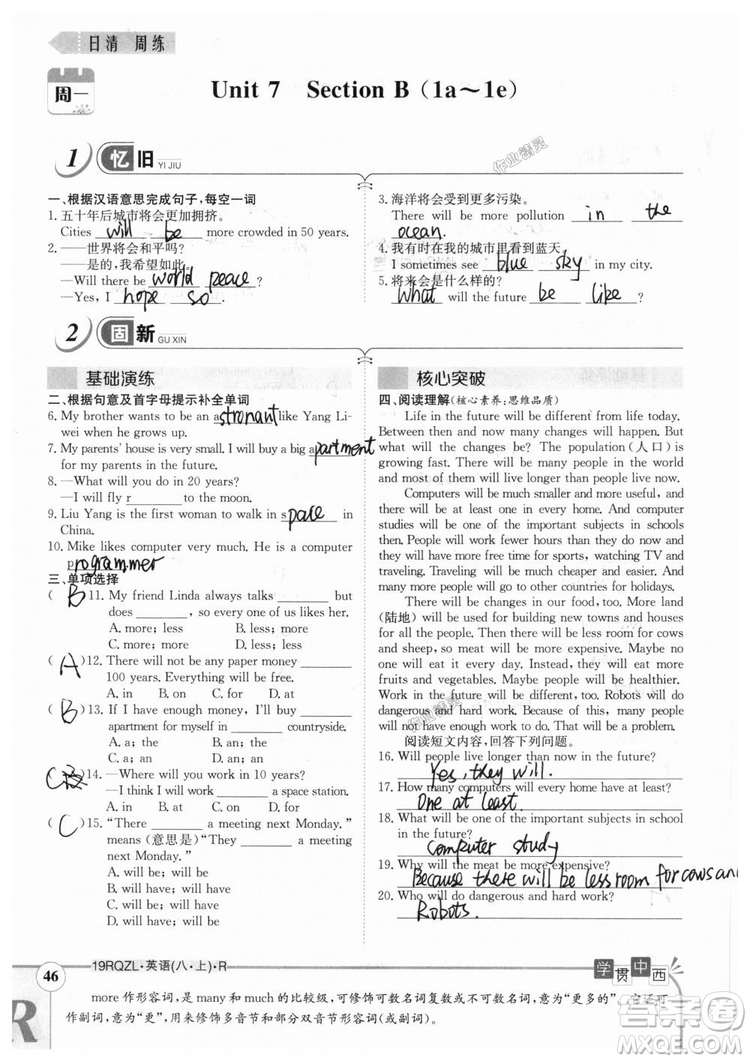 日清 周练
周一
Unit 7 Section B (1a～1e)
1 忆旧 YI JIU
一、根据汉语意思完成句子,每空一词
1. 五十年后城市将会更加拥挤。
Cities will be more crowded in 50 years.
2. ——世界将会和平吗?
——是的,我希望如此。
—Will there be world peace?
—Yes, I hope so.
3. 海洋将会受到更多污染。
There will be more pollution in the
ocean.
4. 我有时在我的城市里看到蓝天。
I sometimes see blue sky in my city.
5. 将来会是什么样的?
What will the future be like?
2 固新 GU XIN
基础演练
二、根据句意及首字母提示补全单词
6. My brother wants to be an astronant like Yang Li-
wei when he grows up.
7. My parents' house is very small. I will buy a big apartment
for my parents in the future.
8. —What will you do in 20 years?
—I will fly r________ to the moon.
9. Liu Yang is the first woman to walk in space in
China.
10. Mike likes computer very much. He is a computer
programmer
三、单项选择
( B )11. My friend Linda always talks ________ but
does ________, so every one of us likes her.
A. more; less B. less; more
C. more; more D. less; less
( A )12. There will not be any paper money ________
100years. Everything will be free.
A. in B. on C. for D. at
( B )13. If I have enough money, I will buy ________
apartment for myself in ________ countryside.
A. a; the B. an; the
C. a; an D. the; a
( C )14. —Where will you work in 10 years?
—I think I will work ________ a space station.
A. in B. at C. on D. for
( C )15. "There ________ a meeting next Monday."
means (意思是) "They ________ a meeting
next Monday."
A. will be; will be
B. will have; will have
C. will be; will have
D. will have; will be
核心突破
四、阅读理解(核心素养:思维品质)
Life in the future will be different from life today.
Between then and now many changes will happen. But
what will the changes be? The population (人口) is
growing fast. There will be many people in the world
and most of them will live longer than people live now.
Computers will be much smaller and more useful,
and there will be at least one in every home. And computer
studies will be one of the important subjects in schools
then. People will work fewer hours than they do now
and they will have more free time for sports, watching TV and
traveling. Traveling will be much cheaper and easier. And
many more people will go to other countries for holidays.
There will be changes in our food, too. More land
(陆地) will be used for building new towns and houses
for all the people. Then there will be less room for cows
and sheep, so meat will be more expensive. Maybe no
one will eat it every day. Instead, they will eat more
fruits and vegetables. Maybe people will be healthier.
Work in the future will be different, too. Robots will do
dangerous and hard work. Because of this, many people will
not have enough work to do. This will be a problem.
阅读短文内容,回答下列问题。
16. Will people live longer than now in the future?
Yes, they will.
17. How many computers will every home have at least?
One at least.
18. What will be one of the important subjects in school
in the future?
Computer study
19. Why will the meat be more expensive?
Because there will be less room for cows and
20. Who will do dangerous and hard work?
Robots.
46
19RQZL·英语(八·上)·R
学贯中西
more 作形容词,是 many 和 much 的比较级,可修饰可数名词复数或不可数名词,意为“更多的”。它还可
作副词,意为“更”,用来修饰多音节和部分双音节形容词(或副词)。
R
作业精灵
作业精灵
答案圈
MXQE.COM